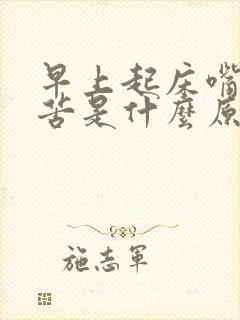 早上起床嘴
苦是什麼原
施志軍